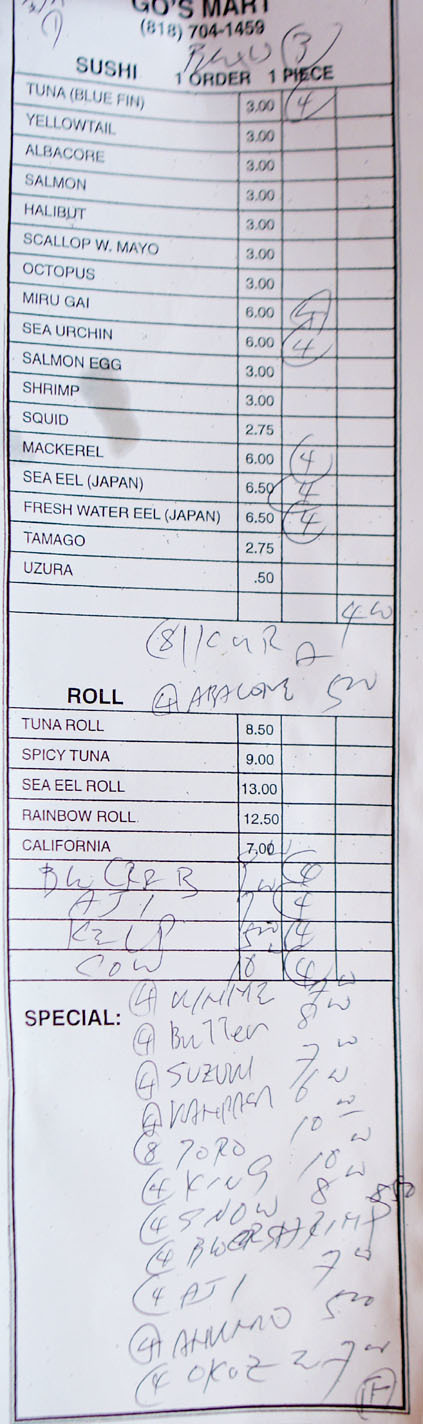 GO'S MART
(818) 704-1459
SUSHI 1 ORDER 1 PIECE
TUNA (BLUE FIN) 3.00 4
YELLOWTAIL 3.00
ALBACORE 3.00
SALMON 3.00
HALIBUT 3.00
SCALLOP W. MAYO 3.00
OCTOPUS 3.00
MIRU GAI 6.00 4
SEA URCHIN 6.00 4
SALMON EGG 3.00
SHRIMP 3.00
SQUID 2.75
MACKEREL 6.00 4
SEA EEL (JAPAN) 6.50 4
FRESH WATER EEL (JAPAN) 6.50 4
TAMAGO 2.75
UZURA .50
4 00
8
ROLL 4 ABALONE 500
TUNA ROLL 8.50
SPICY TUNA 9.00
SEA EEL ROLL 13.00
RAINBOW ROLL 12.50
CALIFORNIA 7.00
4
AJI 7 4
KELP 500 4
COW 10 4
4 7 00
SPECIAL: 4 8
4 SUZUKI 7 00
4
8 TORO 10 00
4 KING 10 00
4 SNOW 8 850
4
4 AJI 7 00
4 500
4 7 00